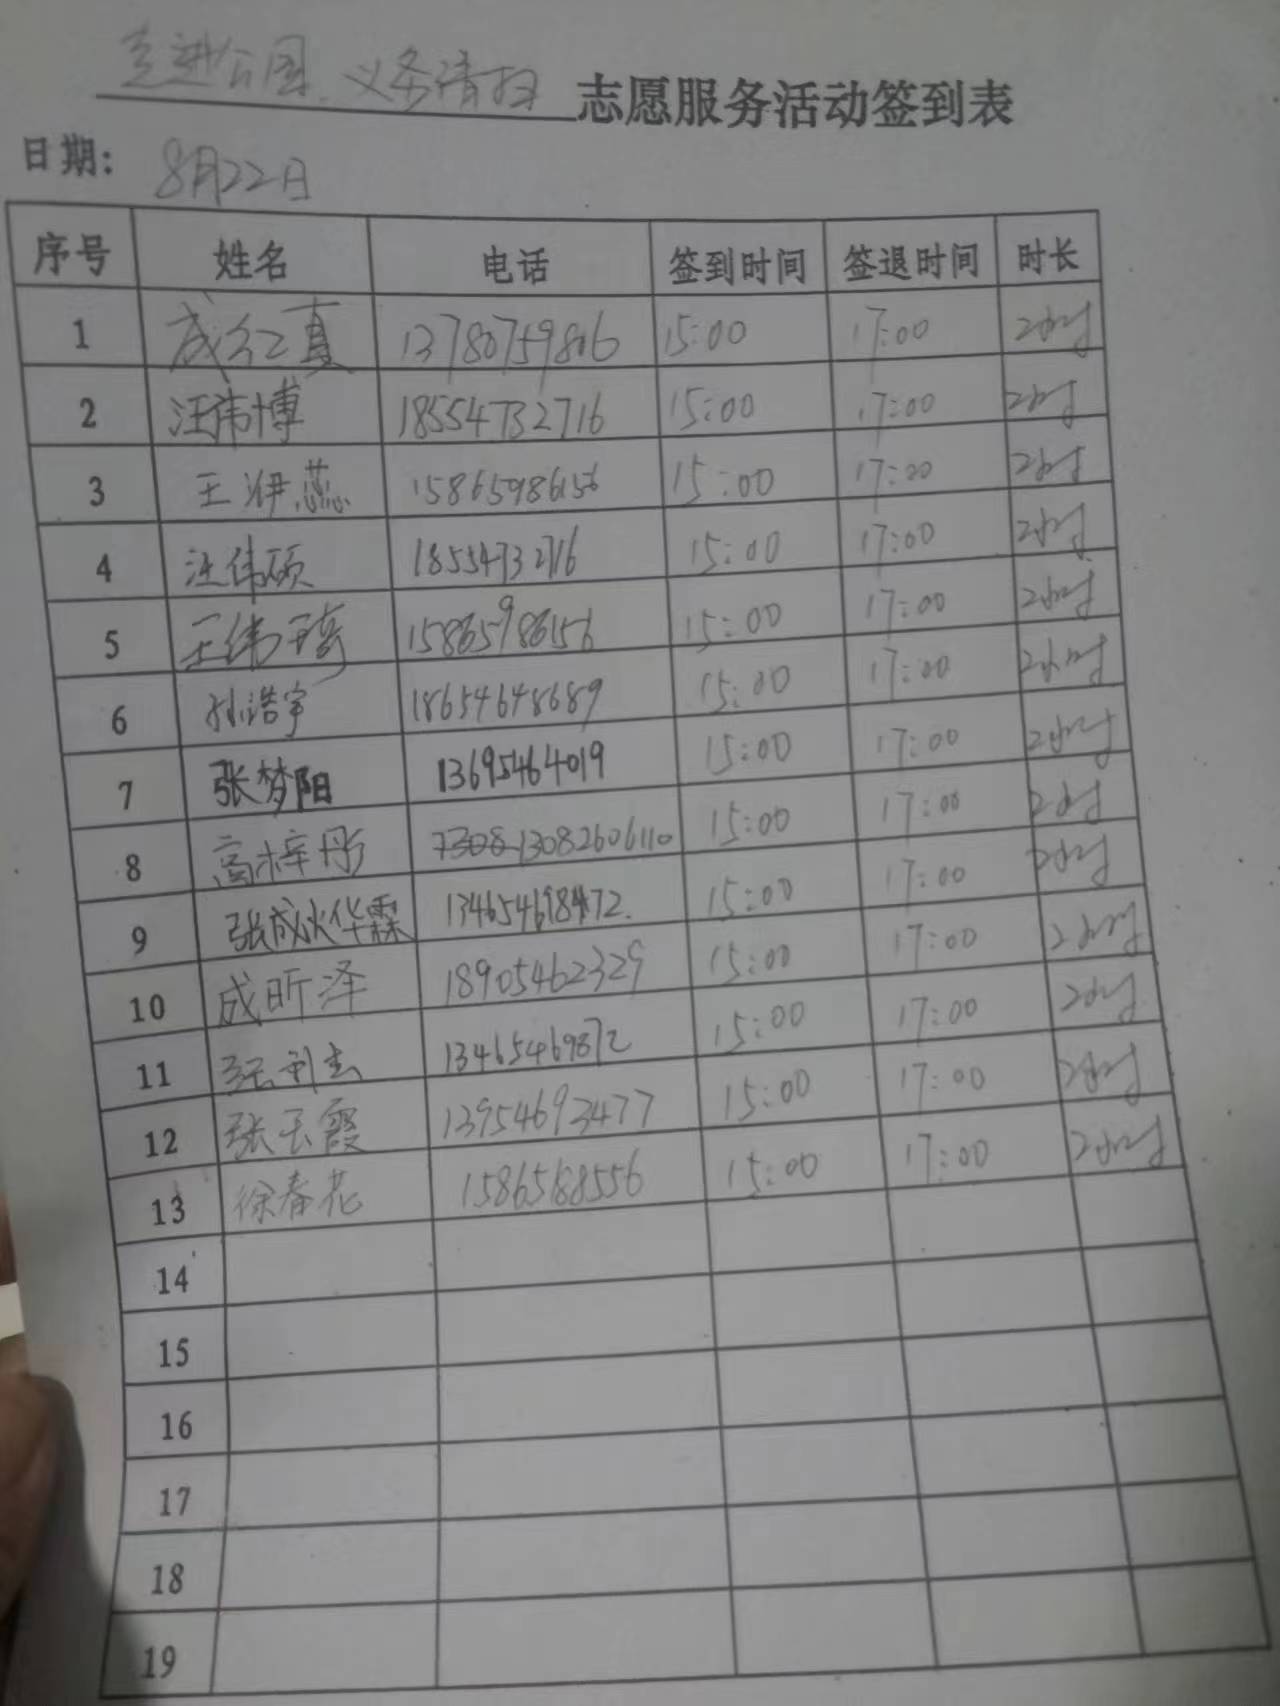 走进公园、义务清扫 志愿服务活动签到表
日期: 8月22日
序号 姓名 电话 签到时间 签退时间 时长
1 成红夏 13780759806 15:00 17:00 2小时
2 汪伟博 18554732716 15:00 17:00 2小时
3 王洢蕊 15865986156 15:00 17:00 2小时
4 汪伟硕 18554732716 15:00 17:00 2小时
5 王伟琦 15865986156 15:00 17:00 2小时
6 孙浩宇 18654648689 15:00 17:00 2小时
7 张梦阳 13695464019 15:00 17:00 2小时
8 高梓彤 13082606110 15:00 17:00 2小时
9 张成烨霖 13465469872 15:00 17:00 2小时
10 成昕泽 18905462329 15:00 17:00 2小时
11 张利吉 13465469872 15:00 17:00 2小时
12 张玉霞 13954693477 15:00 17:00 2小时
13 徐春花 15865188556 15:00 17:00 2小时
14
15
16
17
18
19